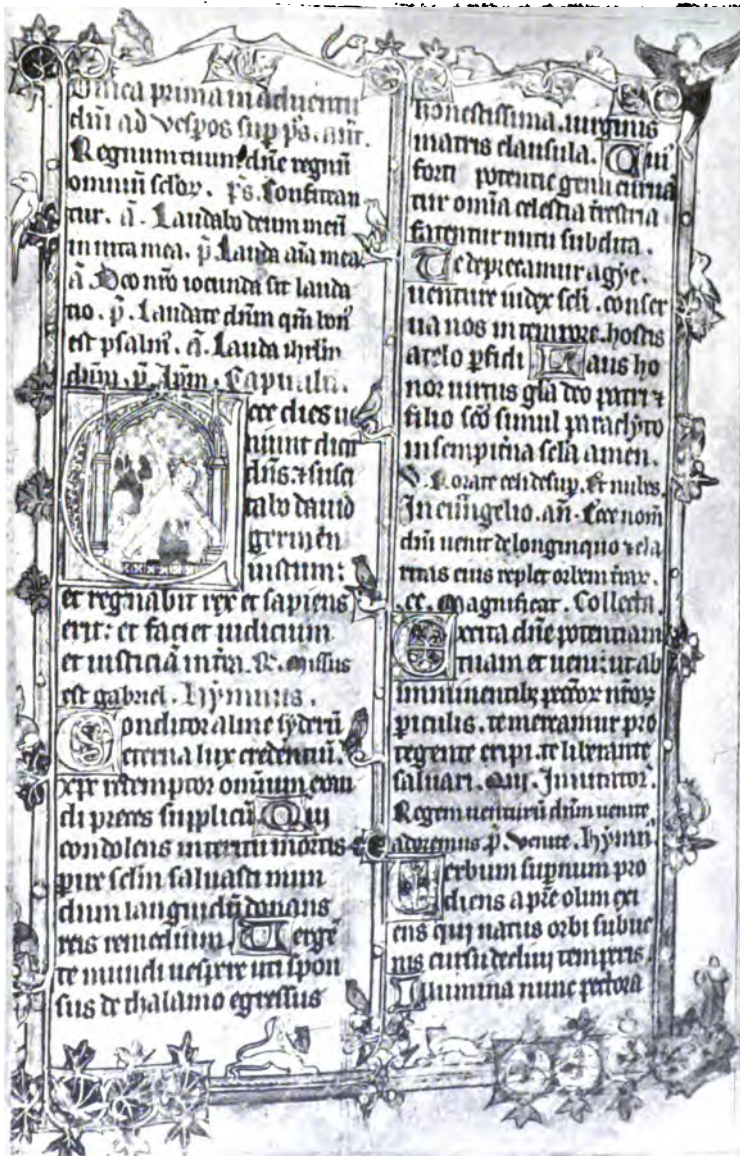 Dnica prima in aduentu
dni ad vespos sup ps. ant.
Regnum tuum dne regnu
omniu sclor. ps. Confitean
tur. a. Laudabo deum meu
in uita mea. p. Lauda aia mea
a. Deo nro iocunda sit lauda
tio. p. Laudate dnm qm bon
est psalm. a. Lauda ihrlm
dnm. p. Ipm. Capitulu.
Ecce dies ue
niunt dicit
dns. et susci
tabo dauid
germen
iustum:
et regnabit rex et sapiens
erit: et faciet iudicium
et iusticia in tra. R. Missus
est gabriel. Hymnus.
Conditor alme syderu
eterna lux credentiu.
xpe redemptor omnium exau
di preces supplicu. Qui
condolens interitu mortis
pire sclm saluasti mun
dum languidu donans
reis remedium. Uerge
te mundi uespere uti spon
sus de thalamo egressus
honestissima. uirginis
matris clausula. Cui
forti potentie genu curua
tur omia celestia trestria
fatentur nutu subdita.
Te deprecamur agye.
uenture iudex scli. conser
ua nos in tempore. hostis
a telo pfidi. Laus ho
nor uirtus gla deo patri et
filio sco simul paraclyto
in sempitna scla amen.
V. Rorate celi desup. Et nubes.
In euungelio. an. Ecce nom
dni uenit de longinquo et cla
ritas eius replet orbem trar.
Magnificat. Collecta.
Excita dne potentiam
tuam et ueni: ut ab
imminentib; peccator nror
piculis. te mereamur pro
tegente eripi. te liberante
saluari. Qui. Inuitator.
Regem uenturu dnm uenite
adoremus. p. Venite. hymn
Uerbum supnum pro
diens a pre olim exi
ens qui natus orbi subue
nis cursu decliui temporis.
Illumina nunc pectora